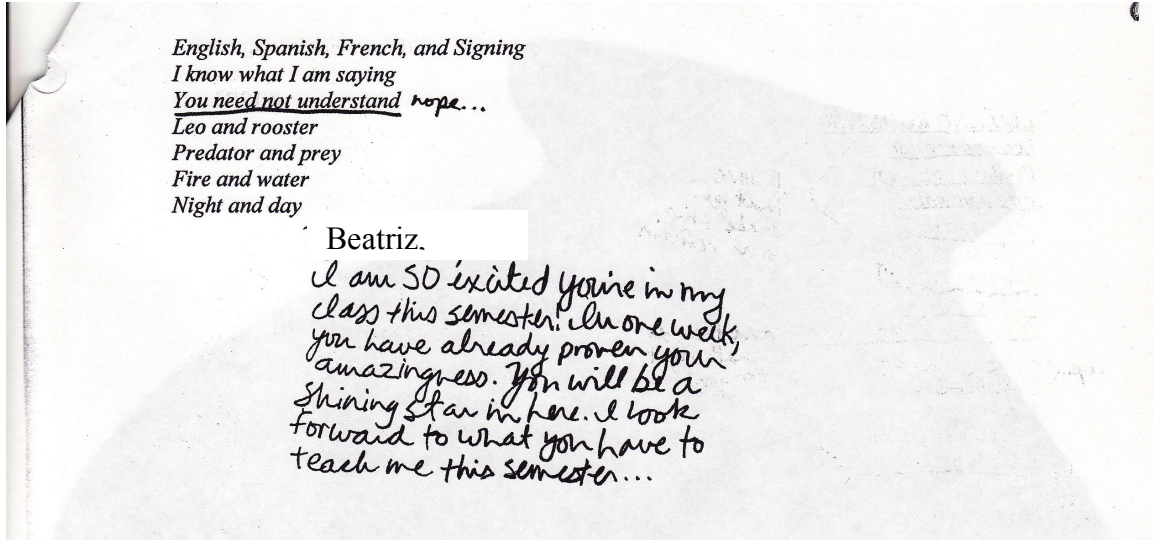 English, Spanish, French, and Signing
I know what I am saying
You need not understand nope...
Leo and rooster
Predator and prey
Fire and water
Night and day
Beatriz,
I am SO excited you're in my
class this semester! In one week,
you have already proven your
amazingness. You will be a
shining star in here. I look
forward to what you have to
teach me this semester...